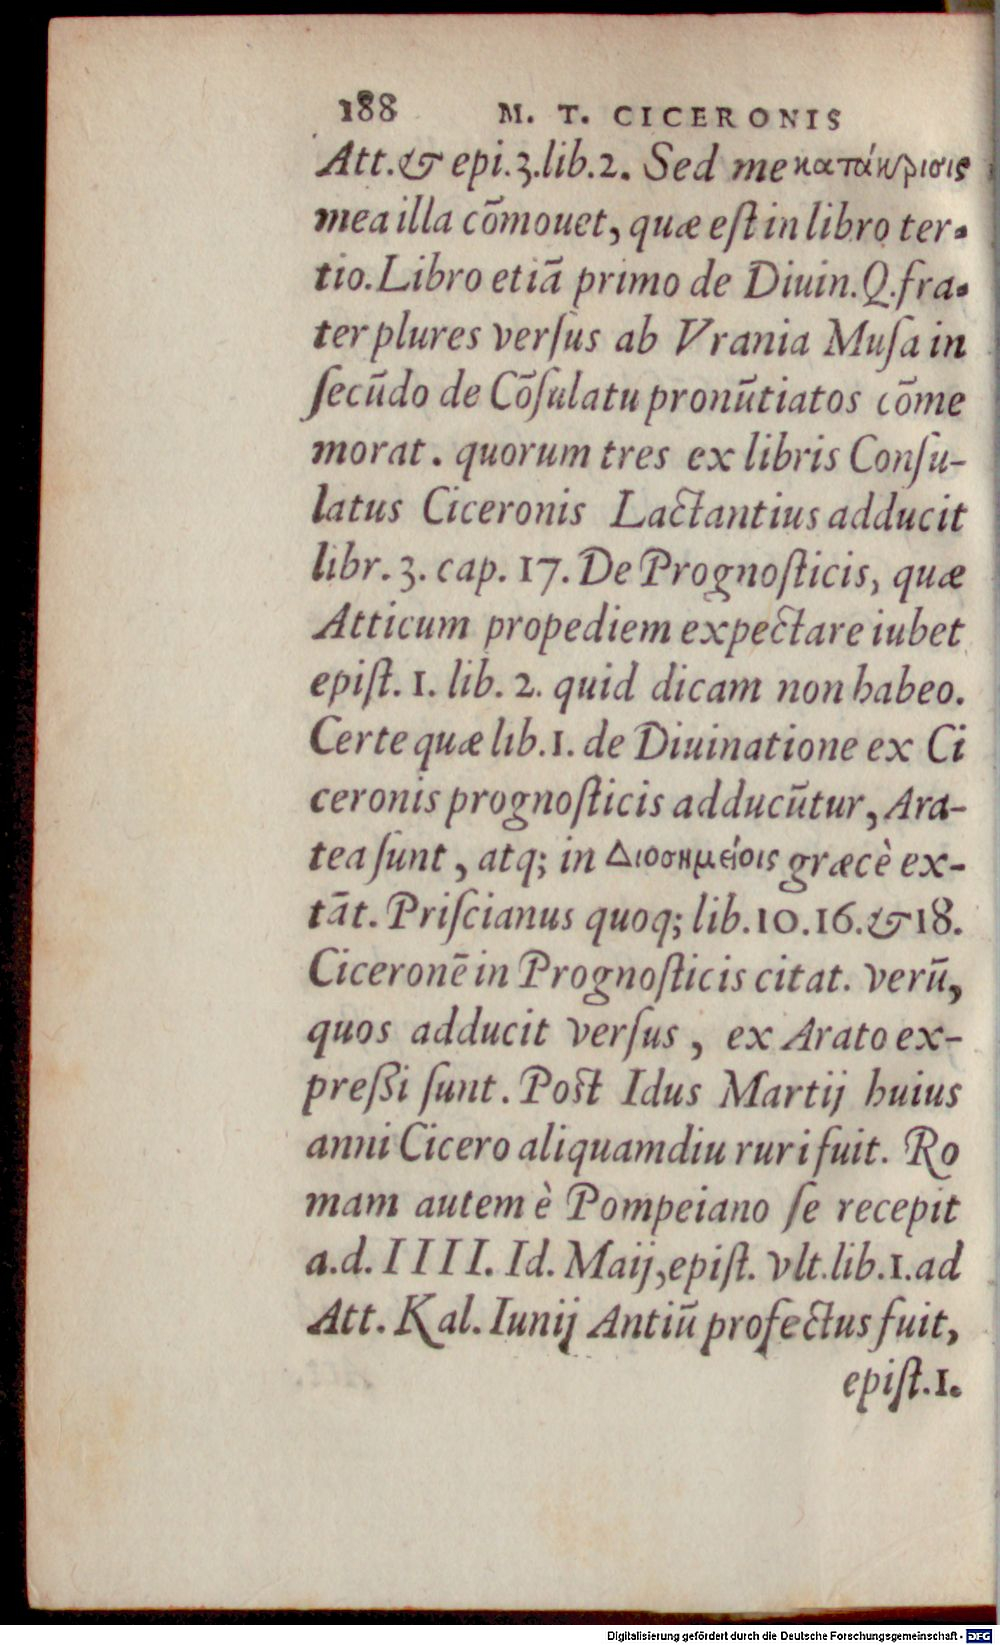 188 M. T. CICERONIS
Att. & epi. 3. lib. 2. Sed me κατάκρισις
mea illa cōmouet, quæ eſt in libro ter-
tio. Libro etiā primo de Diuin. Q. fra-
ter plures verſus ab Vrania Muſa in
ſecūdo de Cōſulatu pronūtiatos cōme
morat. quorum tres ex libris Conſu-
latus Ciceronis Lactantius adducit
libr. 3. cap. 17. De Prognoſticis, quæ
Atticum propediem expectare iubet
epiſt. 1. lib. 2. quid dicam non habeo.
Certe quæ lib. 1. de Diuinatione ex Ci
ceronis prognoſticis adducūtur, Ara-
tea ſunt, atq; in Διοσημείοις græcè ex-
tāt. Priſcianus quoq; lib. 10. 16. & 18.
Ciceronē in Prognoſticis citat. verū,
quos adducit verſus, ex Arato ex-
preßi ſunt. Poſt Idus Martij huius
anni Cicero aliquamdiu ruri fuit. Ro
mam autem è Pompeiano ſe recepit
a.d. IIII. Id. Maij, epiſt. vlt. lib. 1. ad
Att. Kal. Iunij Antiū profectus fuit,
epiſt. 1.
Digitalisierung gefördert durch die Deutsche Forschungsgemeinschaft - DFG